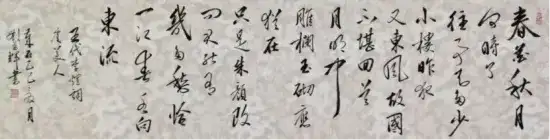 春花秋月
何時了
往事知多少
小樓昨夜
又東風故國
不堪回首
月明中
雕欄玉砌應
猶在
只是朱顏改
問君能有
幾多愁恰
一江春水向
東流
五代李煜詞
虞美人
乙巳 月
書